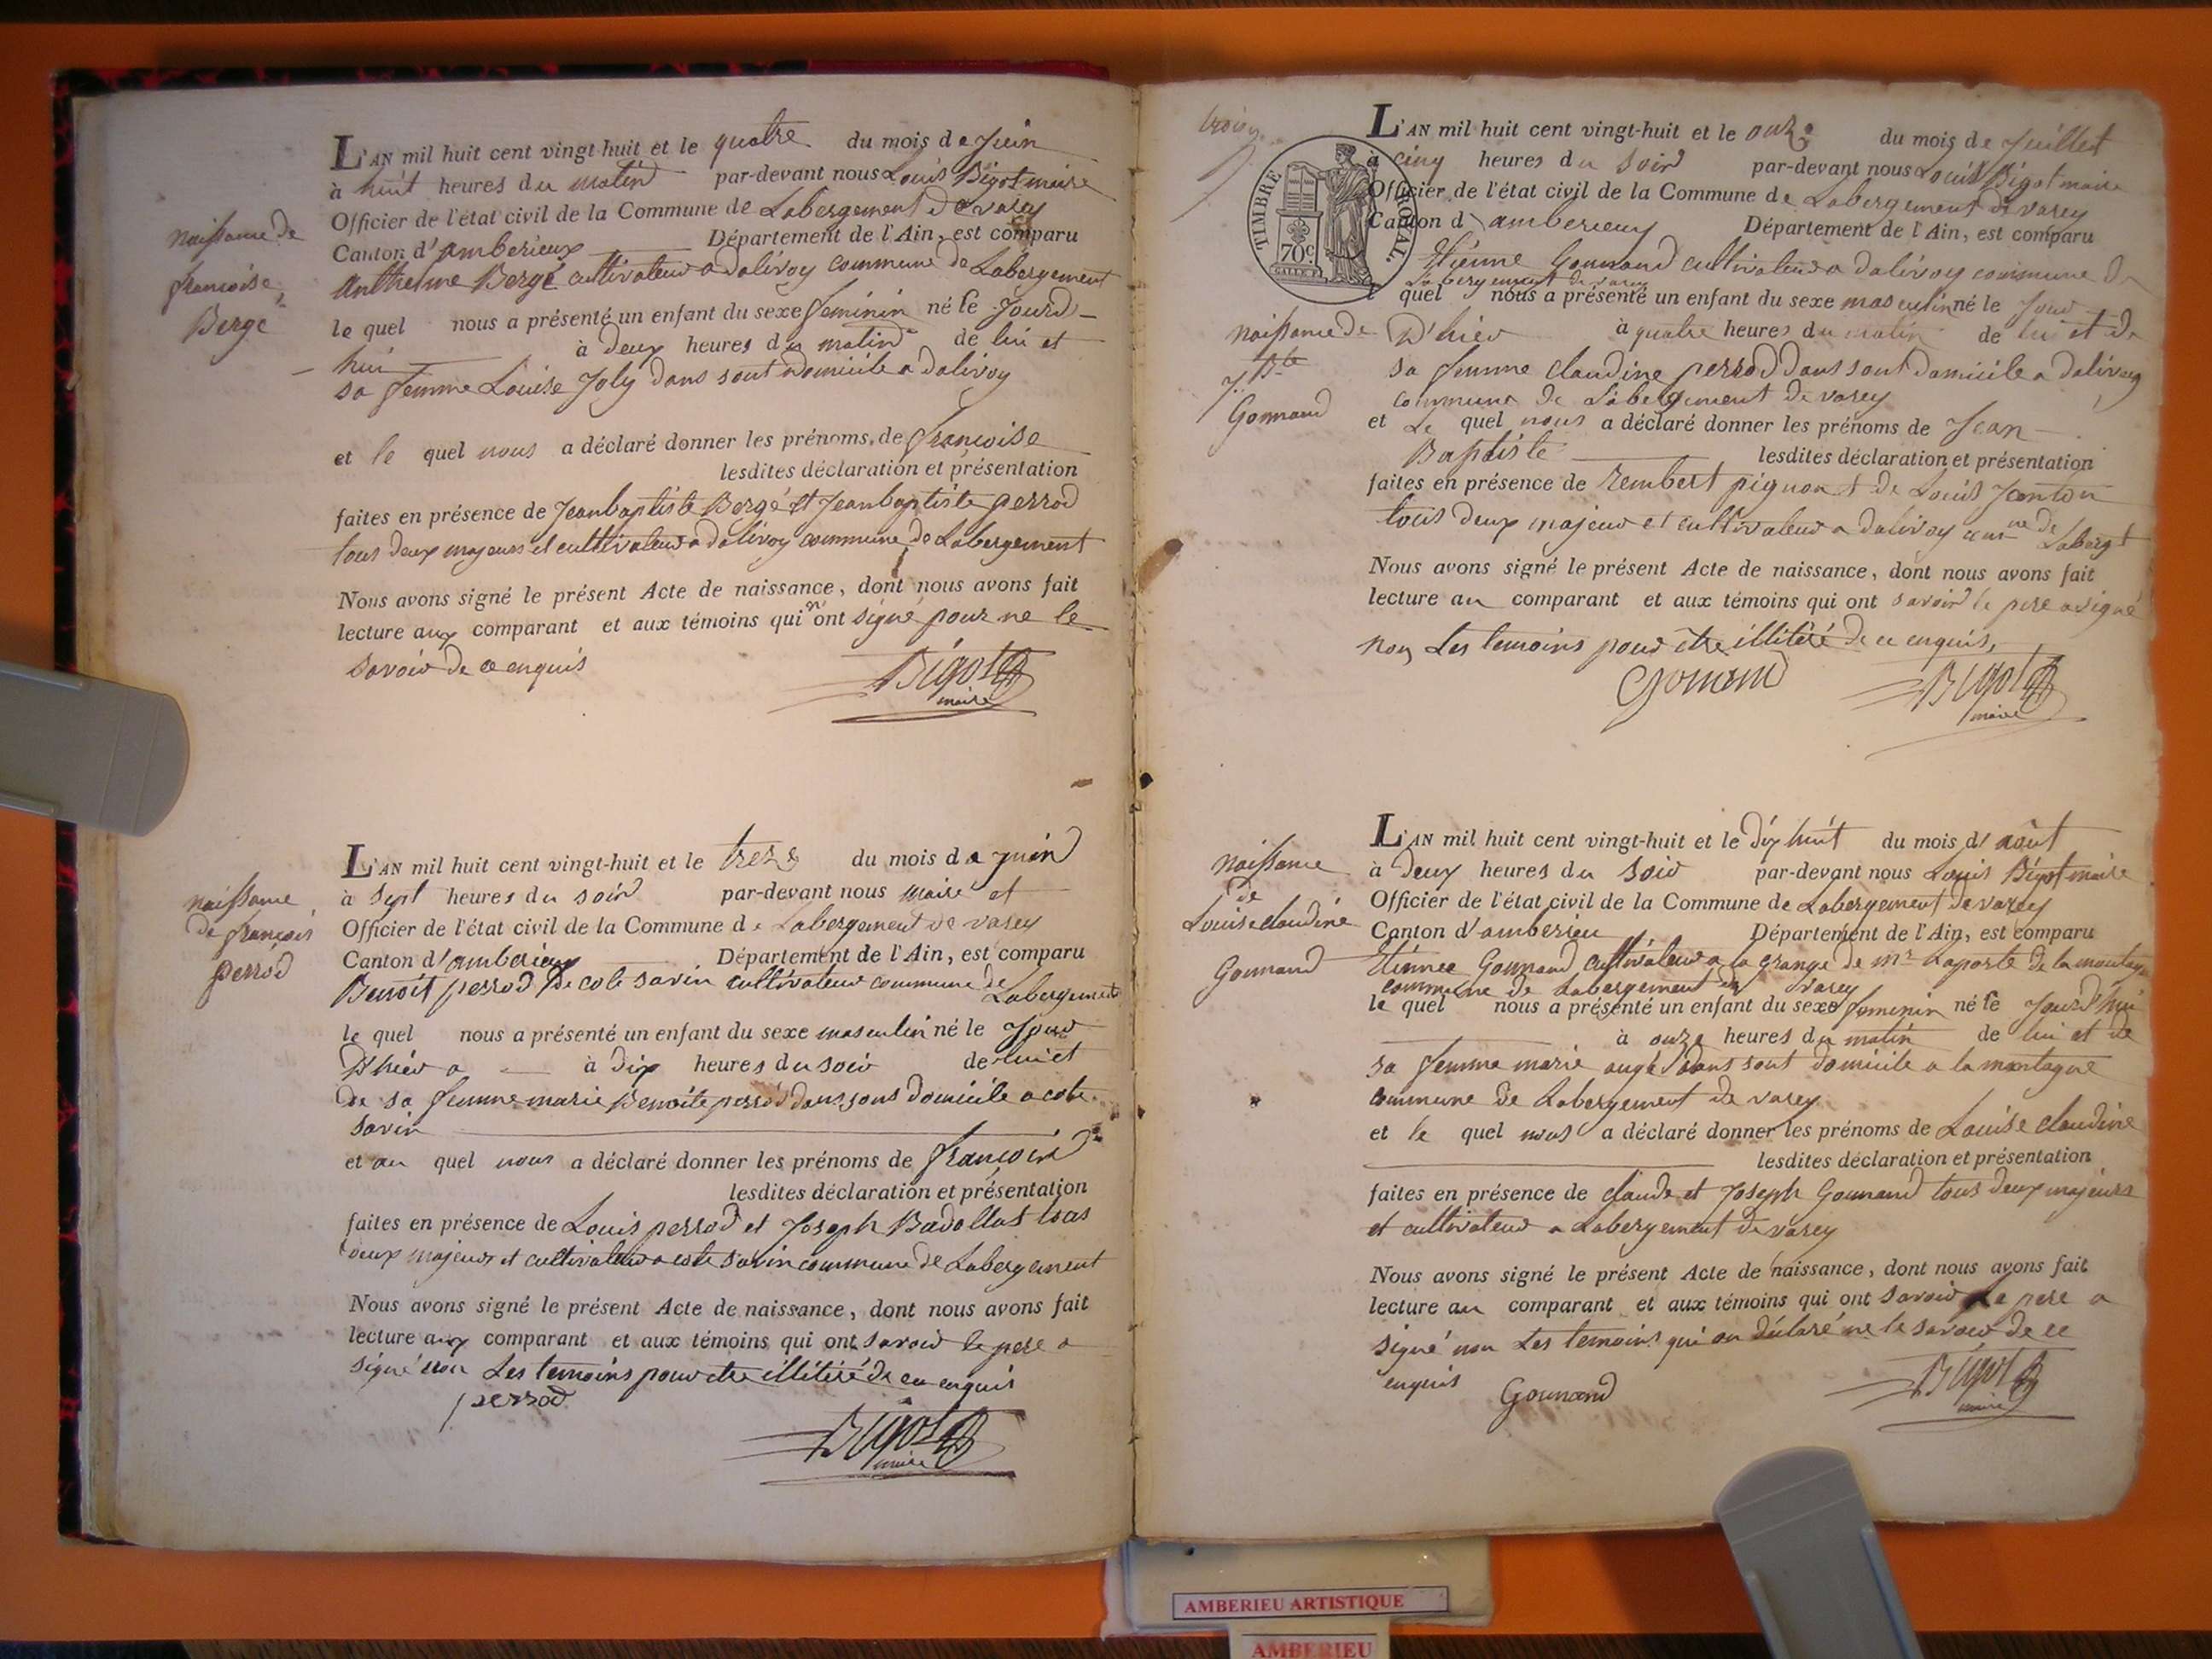 L'AN mil huit cent vingt-huit et le quatre du mois de Juin
à huit heures du matin par-devant nous Louis Bigot maire
Officier de l'état civil de la Commune de Labergement de varey
Canton d'amberieux Département de l'Ain, est comparu
Anthelme Bergé cultivateur a dalivoy commune de Labergement
le quel nous a présenté un enfant du sexe feminin né le Jourd-
hui à deux heures du matin de lui et
sa femme Louise Joly dans sont domicile a dalivoy
et le quel nous a déclaré donner les prénoms de françoise
lesdites déclaration et présentation
faites en présence de Jeanbaptiste Bergé et Jeanbaptiste perrod
tous deux majeurs et cultivateur a dalivoy commune de Labergement
Nous avons signé le présent Acte de naissance, dont nous avons fait
lecture aux comparant et aux témoins qui n'ont signé pour ne le
savoir de ce enquis
Bigot
maire
naissance de
francoise
Bergé
L'AN mil huit cent vingt-huit et le treze du mois de juin
à sept heures du soir par-devant nous maire et
Officier de l'état civil de la Commune de Labergement de varey
Canton d'amberieux Département de l'Ain, est comparu
Benoit perrod de cote savin cultivateur commune de
Labergement
le quel nous a présenté un enfant du sexe masculin né le Jour
D'hier a à dix heures du soir de lui et
de sa femme marie Benoite perrod dans sons domicile a cote
savin
et au quel nous a déclaré donner les prénoms de françois
lesdites déclaration et présentation
faites en présence de Louis perrod et Joseph Badollat tous
deux majeur et cultivateur a cote savin commune de Labergement
Nous avons signé le présent Acte de naissance, dont nous avons fait
lecture aux comparant et aux témoins qui ont savoir le pere a
signé non Les temoins pour etre illitéré de ce enquis
perrod
Bigot
maire
naissance
de françois
perrod
L'AN mil huit cent vingt-huit et le onze du mois de Juillet
à cinq heures du soir par-devant nous Louis Bigot maire
Officier de l'état civil de la Commune de Labergement de varey
Canton d'amberieux Département de l'Ain, est comparu
Etienne Gonnand cultivateur a dalivoy commune de
Labergement de varey
le quel nous a présenté un enfant du sexe masculin né le Jour
D'hier à quatre heures du matin de lui et de
sa femme claudine perrod dans sont domicile a dalivoy
commune de Labergement de varey
et Le quel nous a déclaré donner les prénoms de Jean
Baptiste lesdites déclaration et présentation
faites en présence de rembert pignon et de Louis Janton
tous deux majeur et cultivateur a dalivoy comne de Labergt
Nous avons signé le présent Acte de naissance, dont nous avons fait
lecture au comparant et aux témoins qui ont savoir le pere a signé
non Les temoins pour etre illitéré de ce enquis,
Bigot
maire
TIMBRE ROYAL.
70c
naissance de
J. Bte
Gonnand
L'AN mil huit cent vingt-huit et le dix huit du mois d'août
à deux heures du soir par-devant nous Louis Bigot maire
Officier de l'état civil de la Commune de Labergement de varey
Canton d'amberieu Département de l'Ain, est comparu
Etiennee Gonnand cultivateur a la grange de mr Laporte de la montagne
commune de Labergement de varey
le quel nous a présenté un enfant du sexe feminin né le Jourd'hui
à onze heures du matin de lui et de
sa femme marie augé dans sont domicile a la montagne
commune de Labergement de varey
et le quel nous a déclaré donner les prénoms de Louise claudine
lesdites déclaration et présentation
faites en présence de claude et Joseph Gonnand tous deux majeurs
et cultivateur a Labergement de varey
Nous avons signé le présent Acte de naissance, dont nous avons fait
lecture au comparant et aux témoins qui ont savoir le pere a
signé non Les temoins qui on déclaré ne le savoir de ce
enquis
Gonnand
Bigot
maire
naissance
de
Louise claudine
Gonnand
AMBERIEU ARTISTIQUE
AMBERIEU